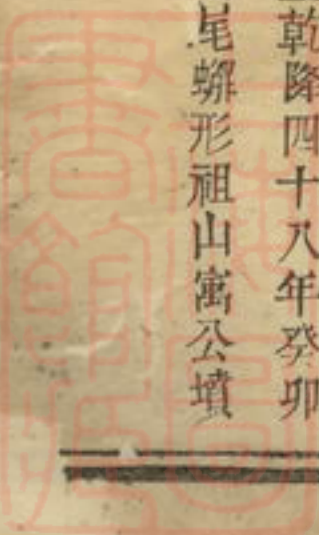 乾隆四十八年癸卯
尾蠏形祖山寓公墳